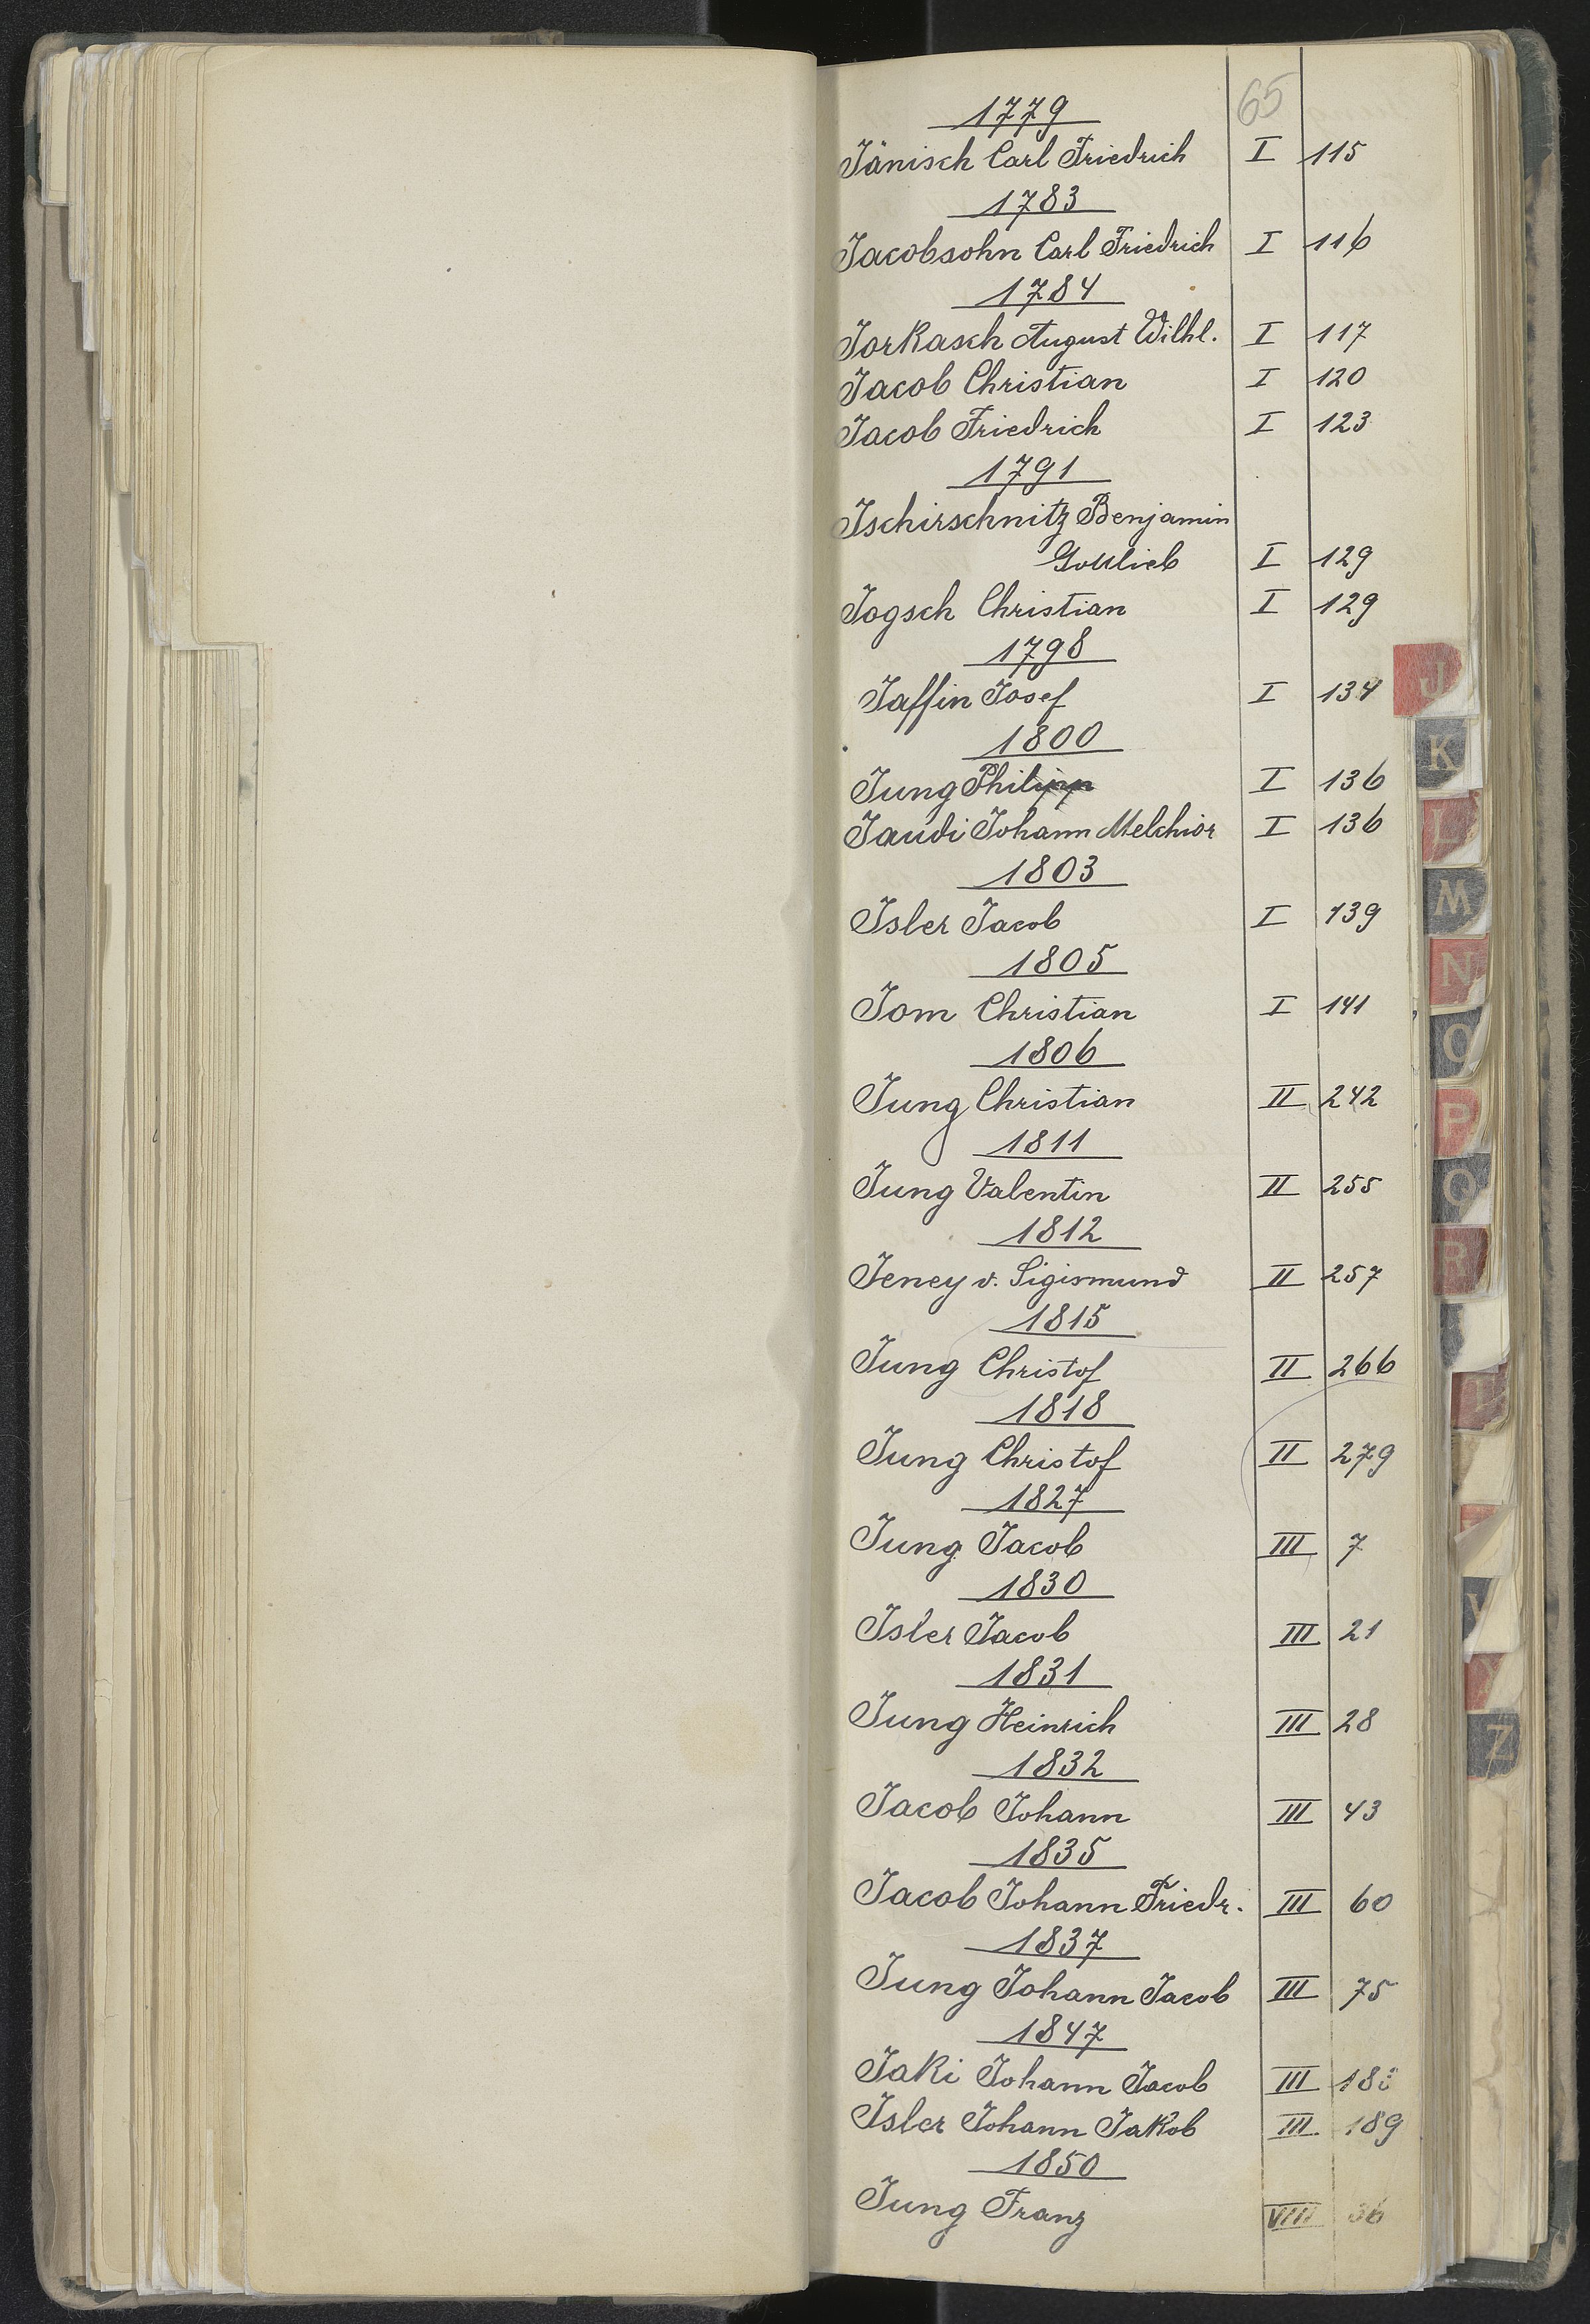 65
1779
Jänisch Carl Friedrich I 115
1783
Jacobsohn Carl Friedrich I 116
1784
Jorkasch August Wilhl. I 117
Jacob Christian I 120
Jacob Friedrich I 123
1791
Jschirschnitz Benjamin
Gottlieb I 129
Jogsch Christian I 129
1798
Jaffin Josef I 134
1800
Jung Philipp I 136
Jaudi Johann Melchior I 136
1803
Isler Jacob I 139
1805
Jom Christian I 141
1806
Jung Christian II 242
1811
Jung Valentin II 255
1812
Jeney v. Sigismund II 257
1815
Jung Christof II 266
1818
Jung Christof II 279
1827
Jung Jacob III 7
1830
Isler Jacob III 21
1831
Jung Heinrich III 28
1832
Jacob Johann III 43
1835
Jacob Johann Friedr. III 60
1837
Jung Johann Jacob III 75
1847
Jaki Johann Jacob III
Isler Johann Jakob III. 189
1850
Jung Franz VIII 36
J
K
L
M
N
O
P
Q
R
Z